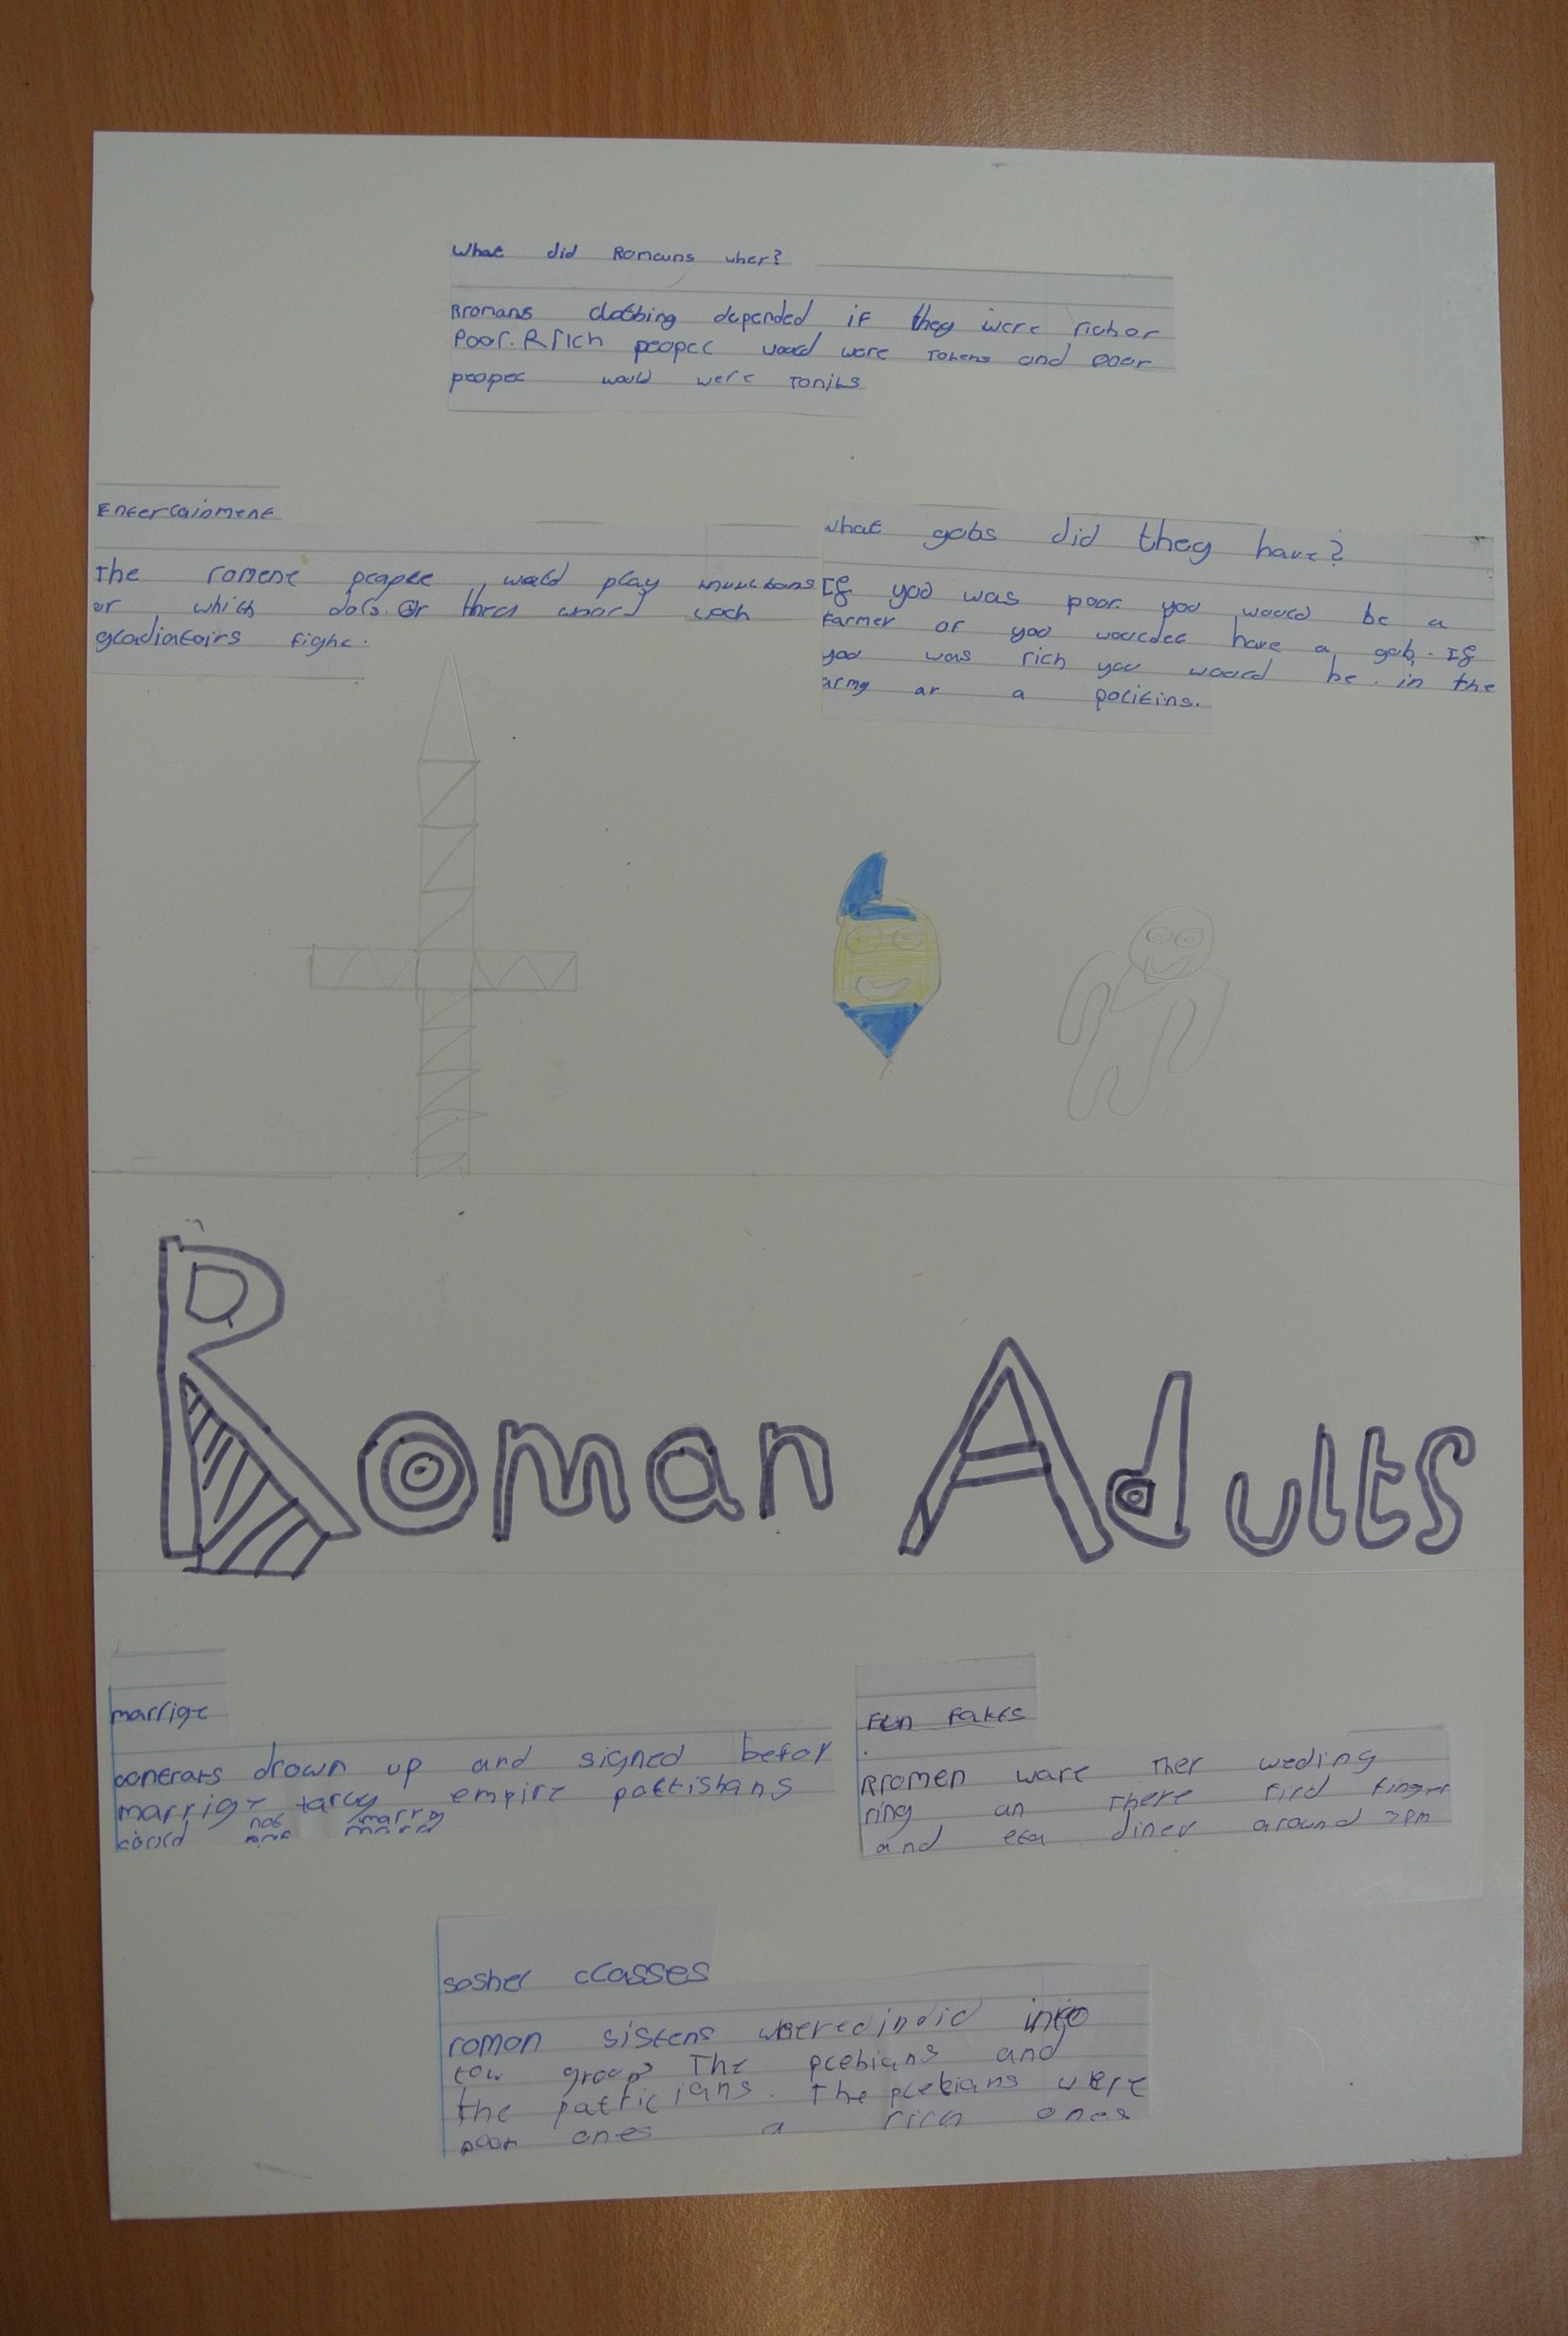 What did Romans wher?
Bromans clothing depended if they were rich or
Poor. R rich peopel woud were and poor
peopel would were Toniks
Entertainment
The romene peaple would play
or which dols. Or thres woord woch
gladiatoirs fight.
what gobs did they have?
If yoo was poor yoo woord be a
farmer or yoo wourdet have a gob. If
yoo was rich you woord be in the
army ar a politins.
Roman Adults
marrige
contrats drown up and signed befor
marrige tarcy empire pattishans
coord not marry
Fun Fakts
Rromen ware Ther weding
ring an There fird finger
and eta diner around 2pm
sosher classes
roman sistens wered indid into
tow groups The plebians and
the patricians. The plebians were
poor ones a rich ones